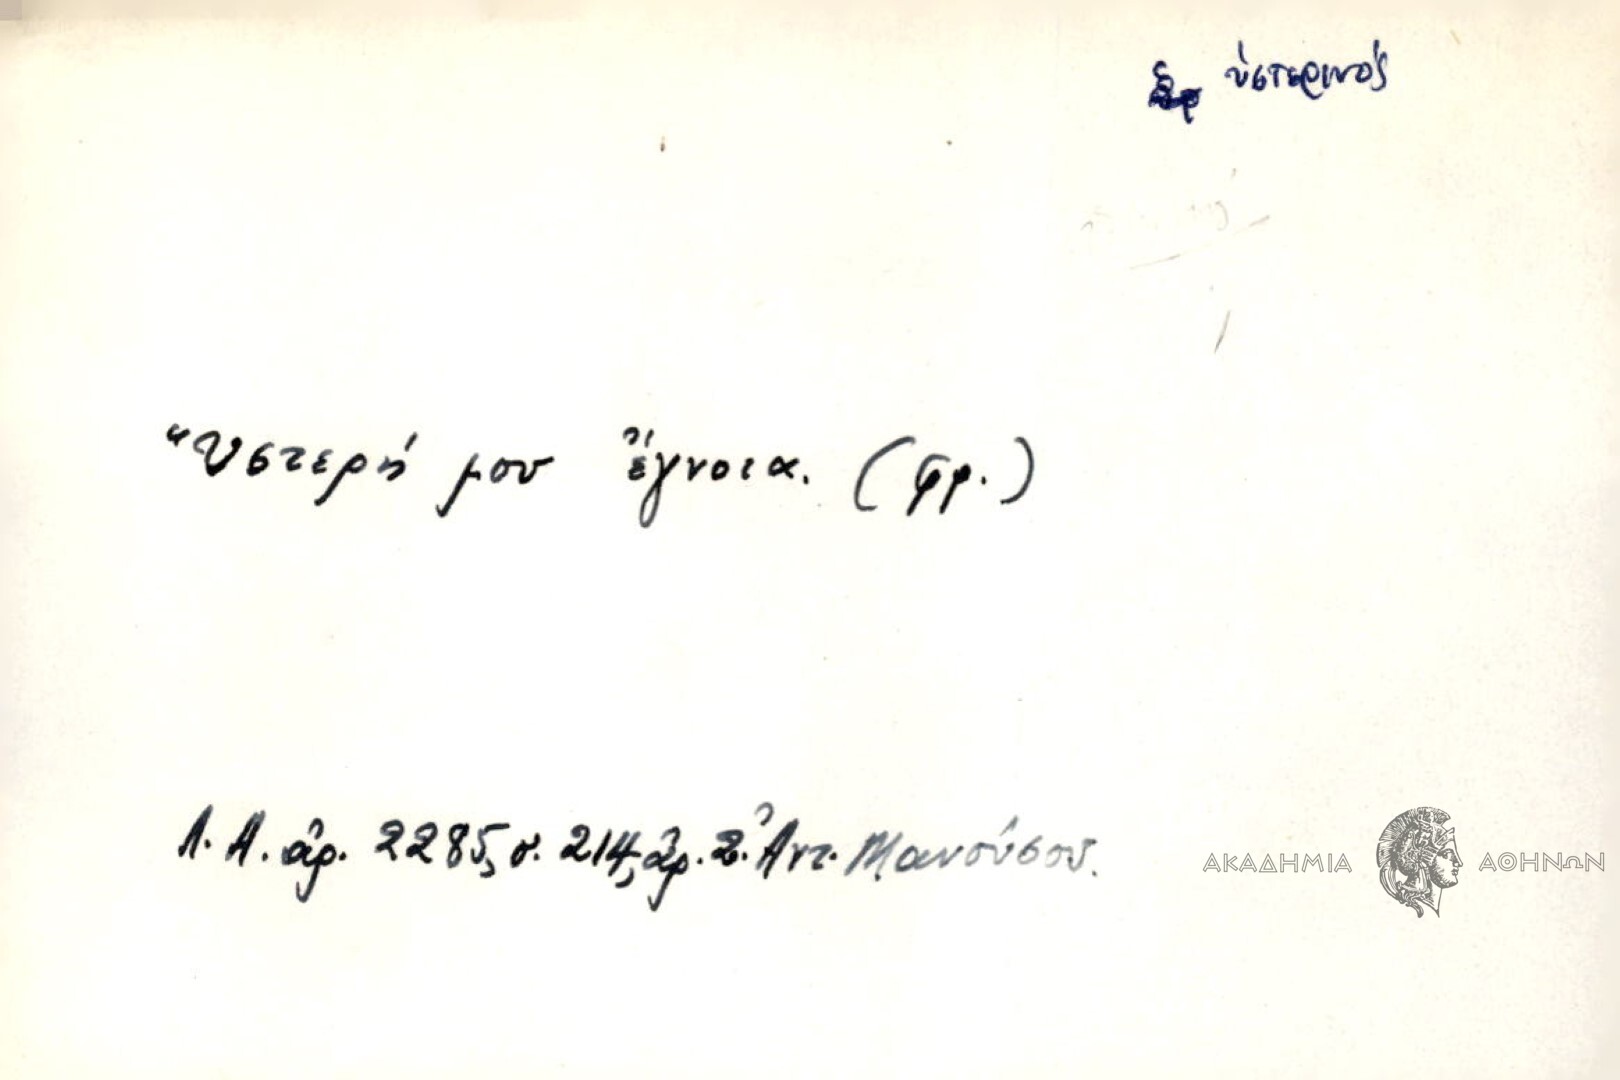 ὑστερινός
"Υστερή μου ἔγνοια. (φρ.)
Λ. Α. ἀρ. 2285, σ. 214, ἀρ. 2. Ἀντ. Μανούσου.
ΑΚΑΔΗΜΙΑ ΑΘΗΝΩΝ